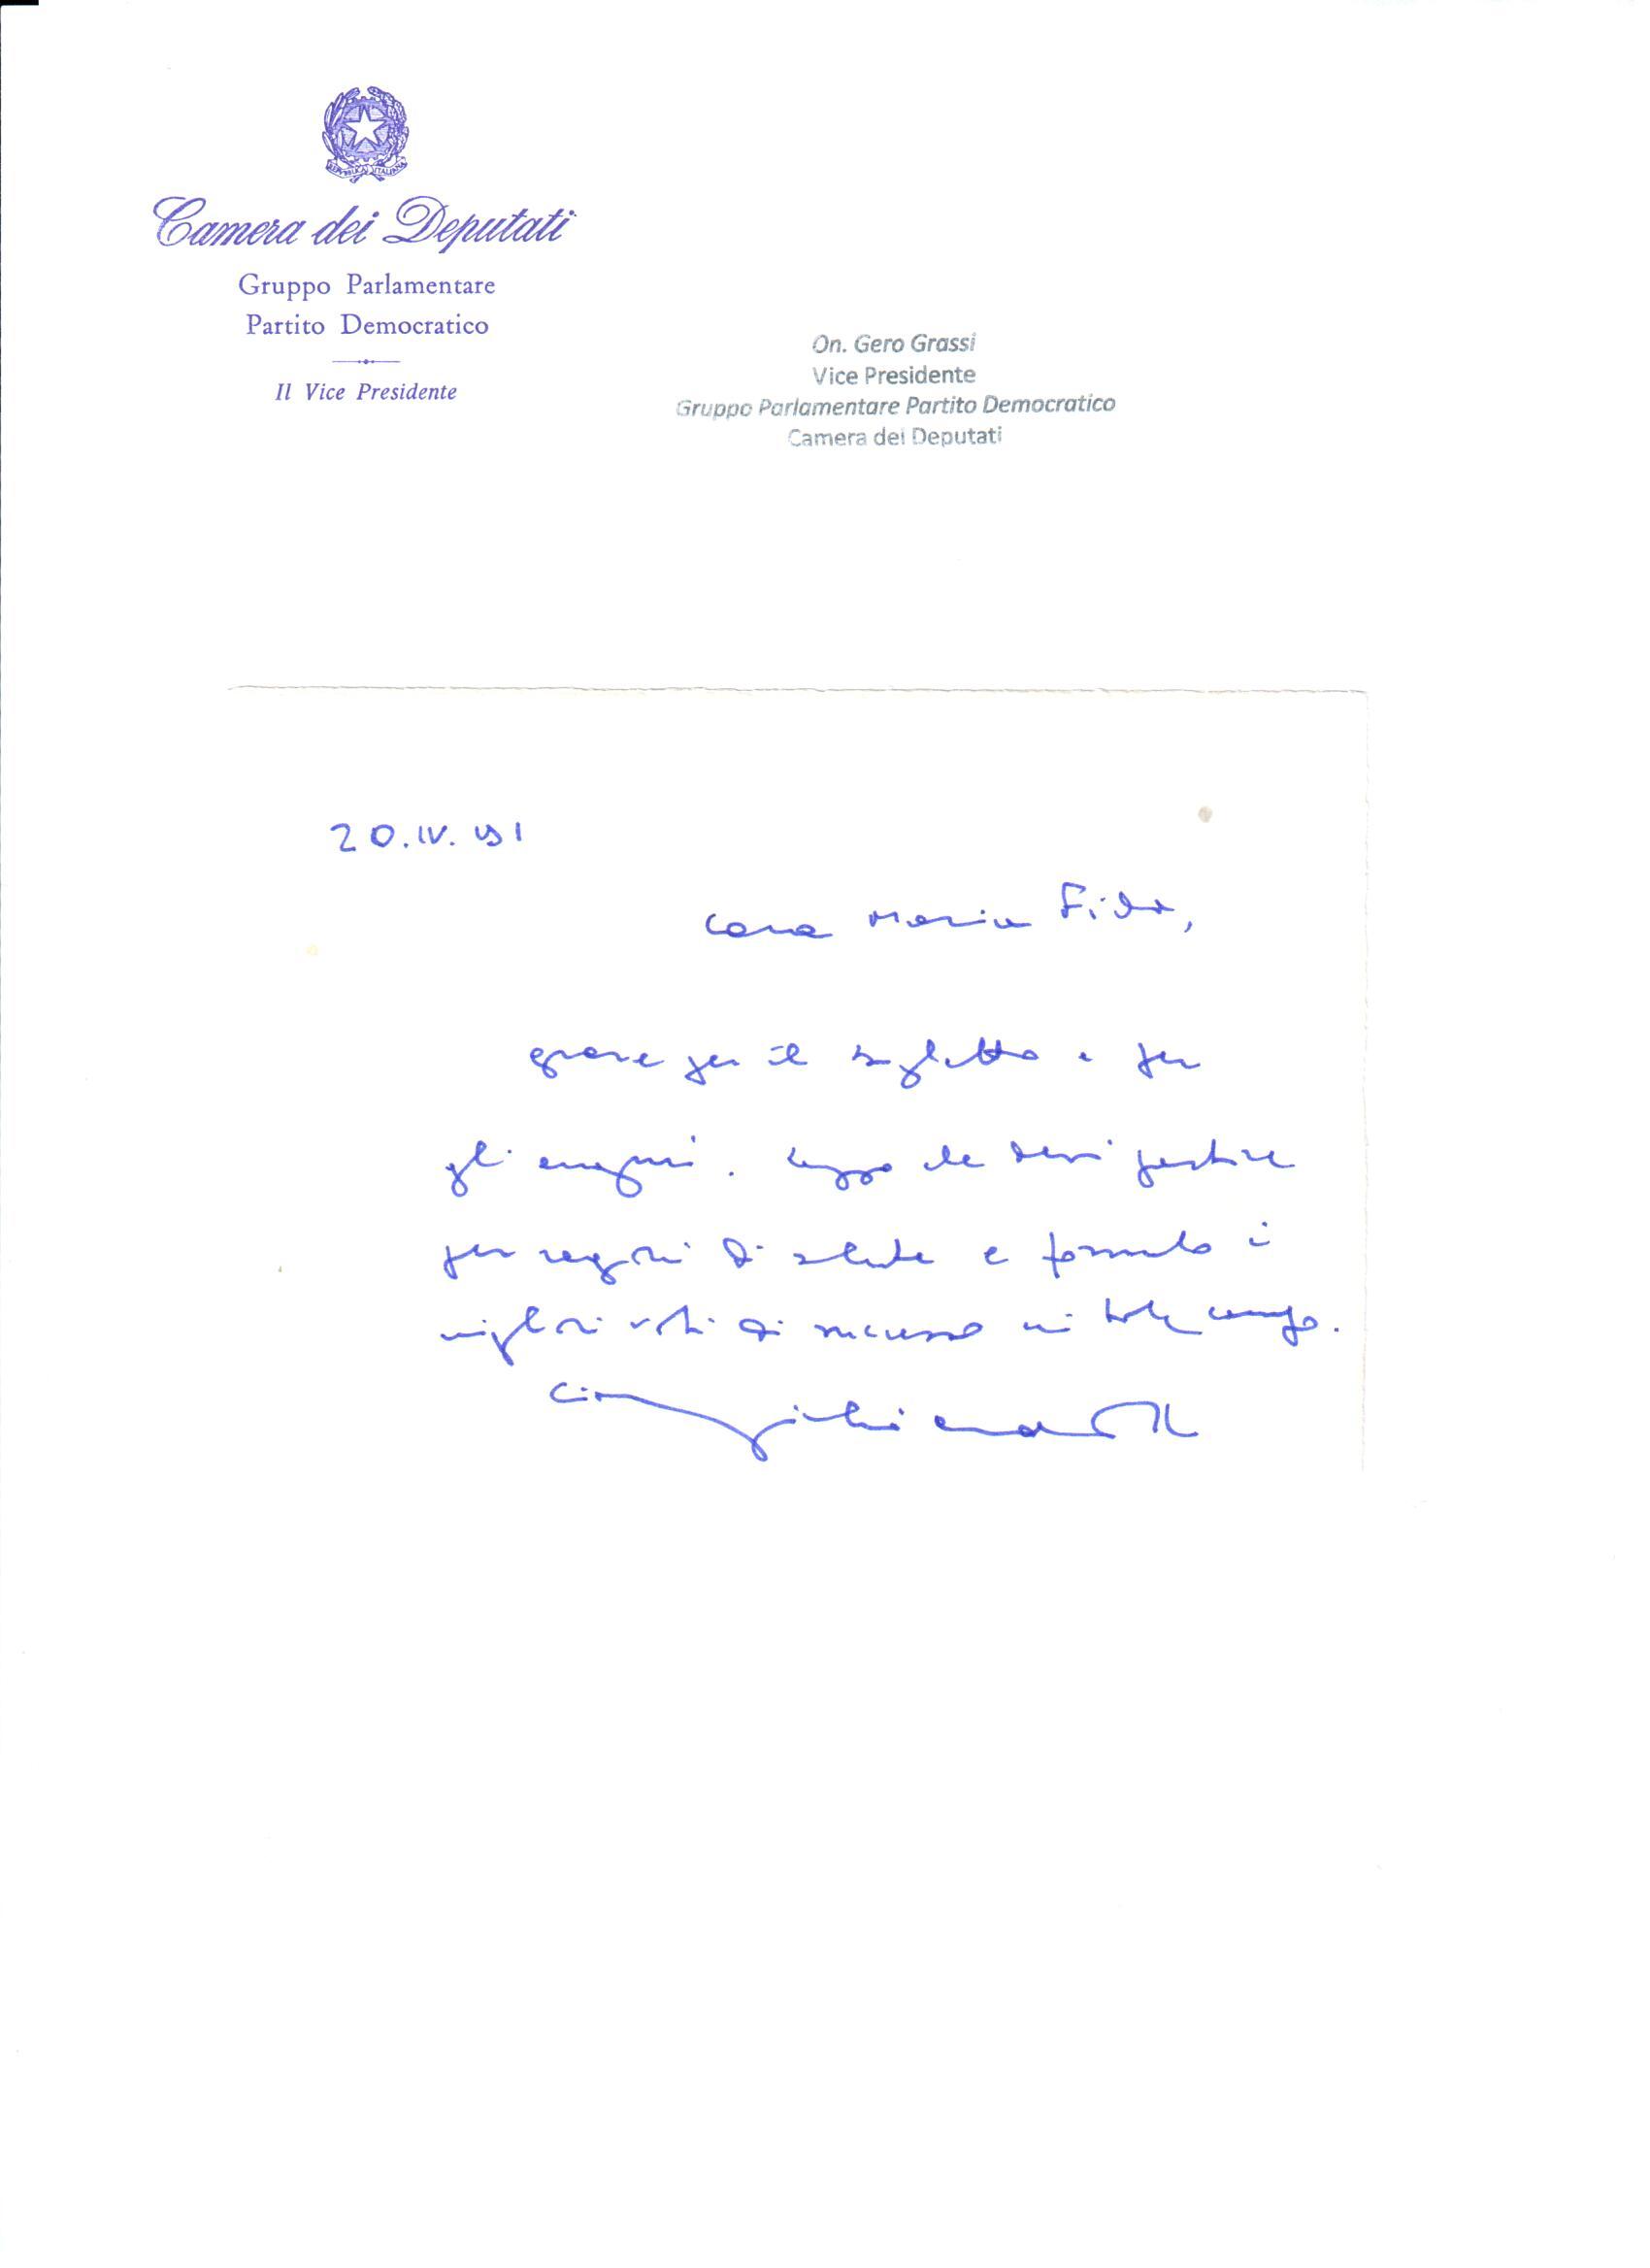 REPVBBLICA ITALIANA
Camera dei Deputati
Gruppo Parlamentare
Partito Democratico
Il Vice Presidente
On. Gero Grassi
Vice Presidente
Gruppo Parlamentare Partito Democratico
Camera dei Deputati
20.IV.91
Cara Maria Fida,
grazie per il biglietto e per
gli auguri. Leggo che devi partire
per ragioni di salute e formulo i
migliori voti di successo in tale campo.
Ciao